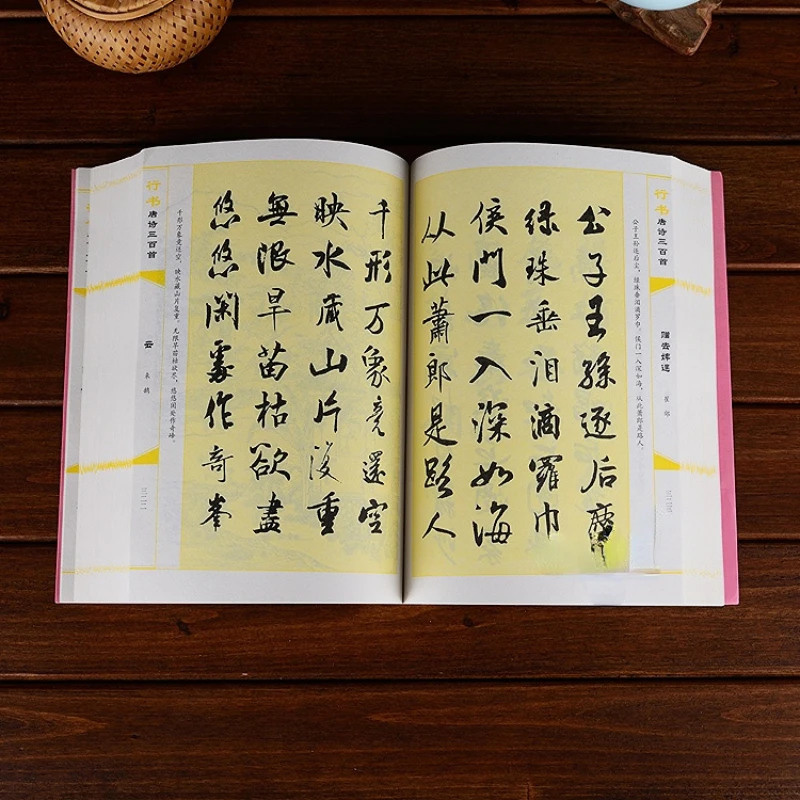 行书唐诗三百首
崔郊
公子王孙逐后尘，绿珠垂泪滴罗巾。侯门一入深如海，从此萧郎是路人。
公子王孫逐后
绿珠垂泪滴羅巾
侯門一入深如海
从此蕭郎是路人
千形万象竟還空
映水藏山片復重
無限旱苗枯欲盡
悠悠闲處作奇峯
千形万象竟还空，映水藏山片复重。无限旱苗枯欲尽，悠悠闲处作奇峰。
行书唐诗三百首
云
来鹄
三二二